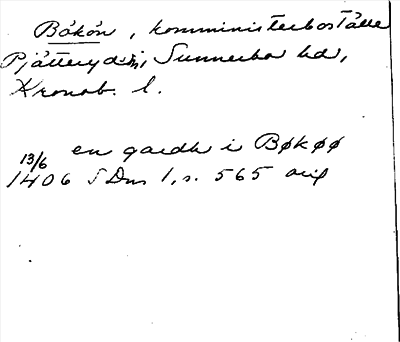 Bökön, komministerboställe
Pjätteryds sn, Sunnerbo hd,
Kronob. l.
13/6 en gardh i Bøkøø
1406 SDns 1, s. 565 orig